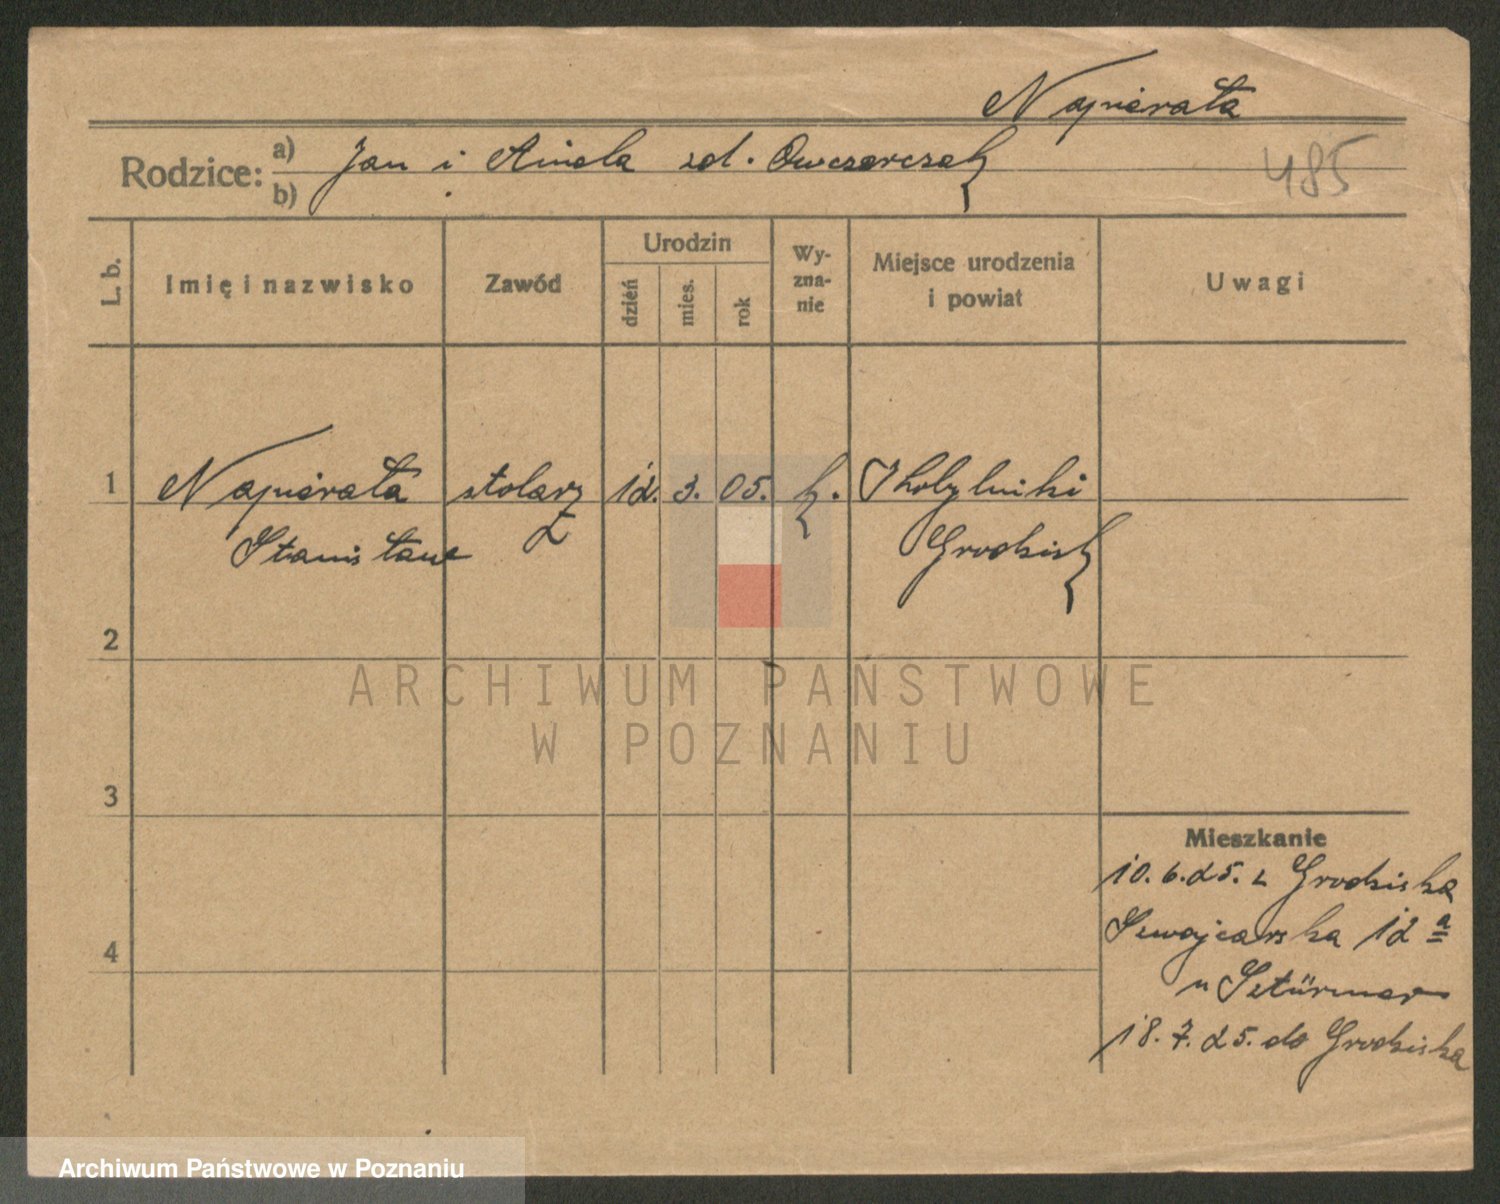 Napierała
Rodzice: a) Jan i Aniela zd. Owczarczak
b)
485
L. b. Imię i nazwisko Zawód Urodzin dzień mies. rok Wyznanie Miejsce urodzenia i powiat Uwagi
1 Napierała stolarz 12. 3. 05. k. Kobylniki
Stanisław Grodzisk
2
ARCHIWUM PAŃSTWOWE
W POZNANIU
3
Mieszkanie
10.6.25. z Grodziska
Szwajcarska 12 a
u Sztürmer
4
18.7.25. do Grodziska
Archiwum Państwowe w Poznaniu